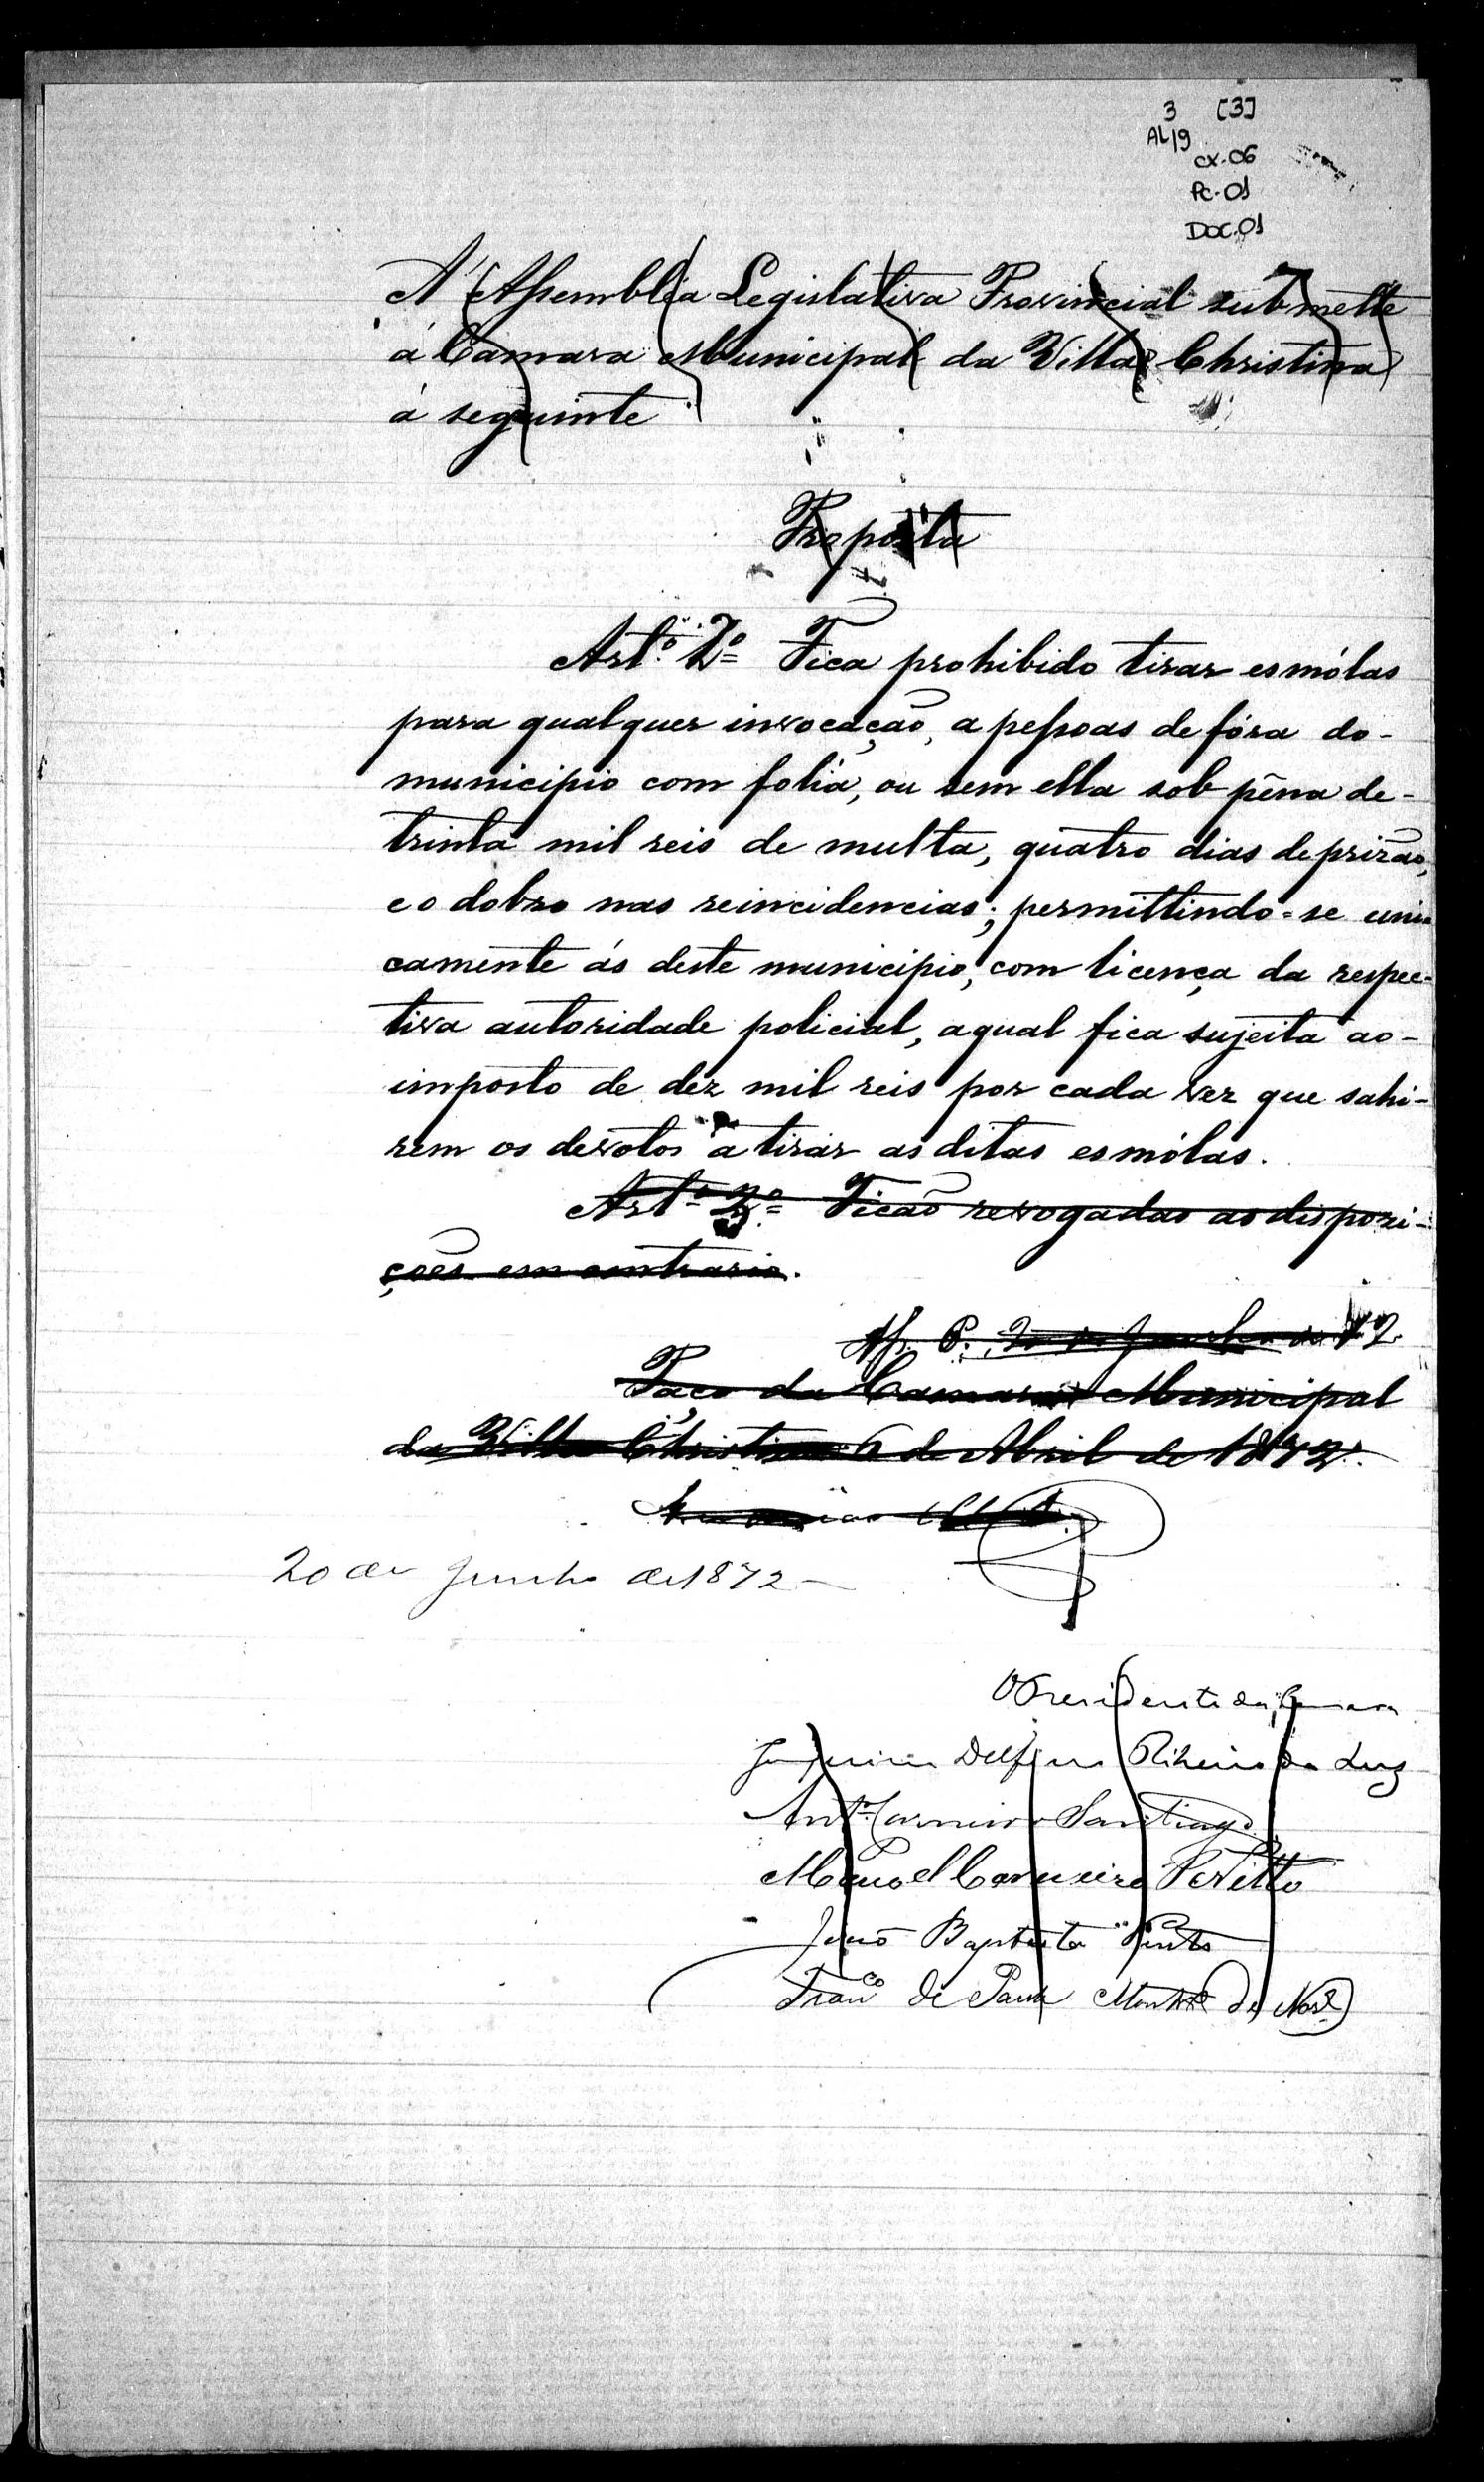 3 [3]
AL19
CX-06
PC-01
DOC.01
A' Assemblea Legislativa Provincial submette
a Camara Municipal da Villa Christina
a seguinte
Proposta
Artº. 2º Fica prohibido tirar esmólas
para qualquer invocação, a pessoas de fóra do-
municipio com folia, ou sem ella sob pena de-
trinta mil reis de multa, quatro dias de prizão,
e o dobro nas reincidencias; permittindo-se uni
camente ás deste municipio, com licença da respec-
tiva autoridade policial, a qual fica sujeita ao-
imposto de dez mil reis por cada vez que sahi-
rem os devotos a tirar as ditas esmólas.
Artº Ficão revogadas as dispozi-
ções em contrario.
P. 20 de Junho de 72
Paço da Camara Municipal
da Villa Christina 6 de Abril de 1872.
20 de Junho de 1872-
O Presidente da Camara
Joaquim Delfino Ribeiro da Luz
Antº. Carneiro Santiago
Manoel Carneiro
João Baptista Pinto
Franco de Paula